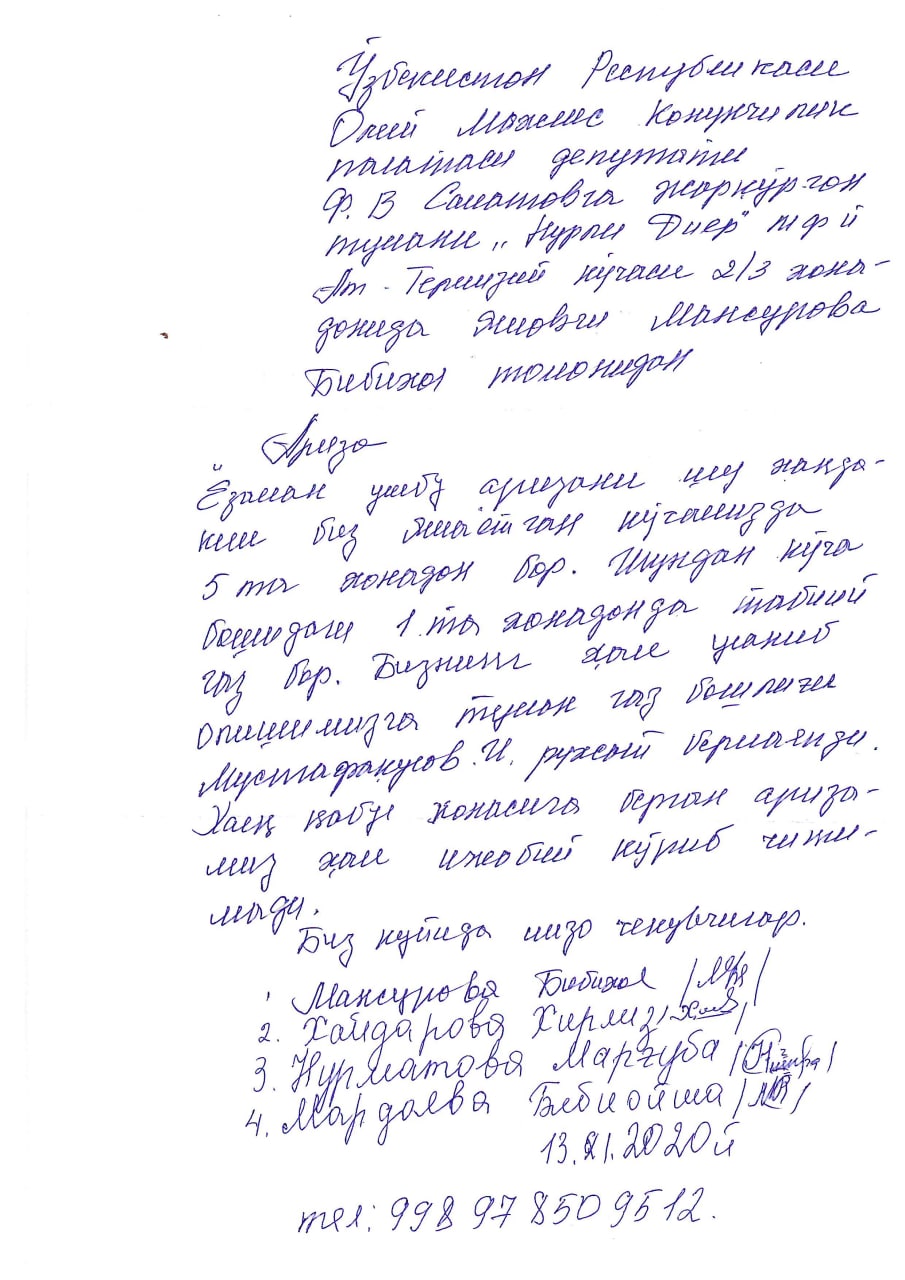 Ўзбекистон Республикаси
Олий Мажлис Конунчилик
палатаси депутати
Ф. В Саматовга жаркўргон
тумани „Нурли Диёр" м ф й
Ат-Термизий кўчаси 2/3 хона-
донида яшовчи Мансурова
Бибихол томонидан
Ариза
Ёзаман ушбу аризани шу хакда-
ким биз яшаётган кўчамизда
5 та хонадон бор. Шундан кўча
бошидаги 1 та хонадонда табиий
газ бор. Бизнинг хам уланиб
олишимизга туман газ бошлиги
Мустафакулов. И. рухсат бермаянди.
Халқ қабул хонасига берган ариза-
миз хам ижобий кўриб чики-
мади.
Биз куйида имзо чекувчилар.
1 Мансурова Бибихол
2. Хайдарова Хирмиз
3. Нурматова Марғуба
4. Мардаева Бибиойша
13. 01. 2020 й
тел: 998 97 850 95 12.